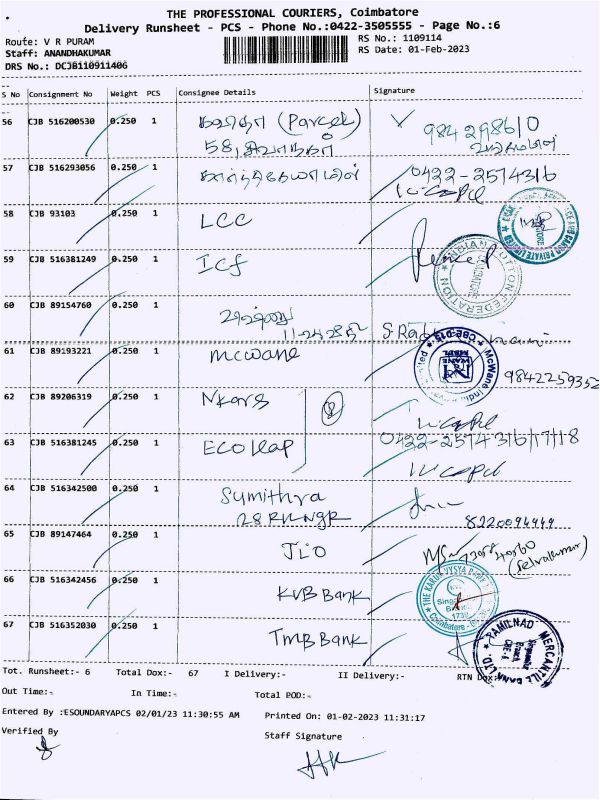 THE PROFESSIONAL COURIERS, Coimbatore
Delivery Runsheet - PCS - Phone No.:0422-3505555 - Page No.:6
Route: V R PURAM
RS No.: 1109114
Staff: ANANDHAKUMAR
RS Date: 01-Feb-2023
DRS No.: DCJB110911406
S No Consignment No Weight PCS Consignee Details Signature
56 CJB 516200530 0.250 1 கவிதா (Parcel) 984298610
58,
57 CJB 516293056 0.250 1 0422-2574316
58 CJB 93103 0.250 1 LCC
59 CJB 516381249 0.250 1 ICF
INDIAN COTTON FEDERATION
60 CJB 89154760 0.250 1
61 CJB 89193221 0.250 1 McWane
CBE-015 McWane
9842259352
62 CJB 89206319 0.250 1
63 CJB 516381245 0.250 1 ECO Leap 0422-2574316/17/18
64 CJB 516342500 0.250 1 Sumithra
8220094949
65 CJB 89147464 0.250 1 JIO
(Selvakumar)
66 CJB 516342456 0.250 1 KVB Bank
THE KARUR VYSYA BANK
Coimbatore
67 CJB 516352030 0.250 1 TMB Bank
TAMILNAD MERCANTILE BANK LTD
Tot. Runsheet:- 6 Total Dox:- 67 I Delivery:- II Delivery:- RTN Dox:-
Out Time:- In Time:- Total POD:-
Entered By :ESOUNDARYAPCS 02/01/23 11:30:55 AM Printed On: 01-02-2023 11:31:17
Verified By
Staff Signature